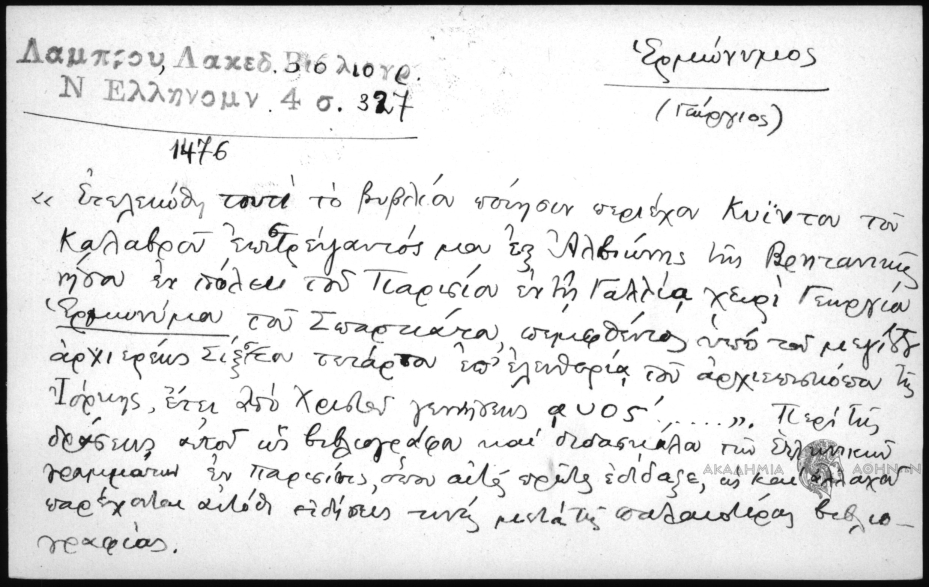 Λαμπρου, Λακεδ. Βιβλιογρ.
Ν Ελληνομν. 4 σ. 327
Ἑρμώνυμος
(Γεώργιος)
1476
« Ἐτελειώθη τουτὶ τὸ βυβλίον ποίησιν περιέχον Κυΐντου τοῦ
Καλαβροῦ ἐπιστρέψαντός μου ἐξ Ἀλβιῶνης τῆς Βρητανικῆς
νήσου ἐν πόλει τοῦ Παρισίου ἐν τῇ Γαλλίᾳ χειρὶ Γεωργίου
Ἑρμωνύμου τοῦ Σπαρτιάτου, πεμφθέντος ὑπὸ τοῦ μεγίστου
ἀρχιερέως Σίξτου τετάρτου ἐπ' ἐλευθερίᾳ τοῦ ἀρχιεπισκόπου τῆς
Ἰόρκης, ἔτει ἀπὸ Χριστοῦ γεννήσεως ͵αυος΄.....». Περὶ τῆς
δράσεως αὐτοῦ ὡς βιβλιογράφου καὶ διδασκάλου τῶν Ἑλληνικῶν
γραμμάτων ἐν Παρισίοις, ὅπου αὐτὸς πρῶτος ἐδίδαξε, ὡς καὶ ἀλλαχοῦ
παρέχονται αὐτόθι εἰδήσεις τινὲς μετὰ τῆς παλαιοτέρας βιβλιο-
γραφίας.
ΑΚΑΔΗΜΙΑ ΑΘΗΝΩΝ